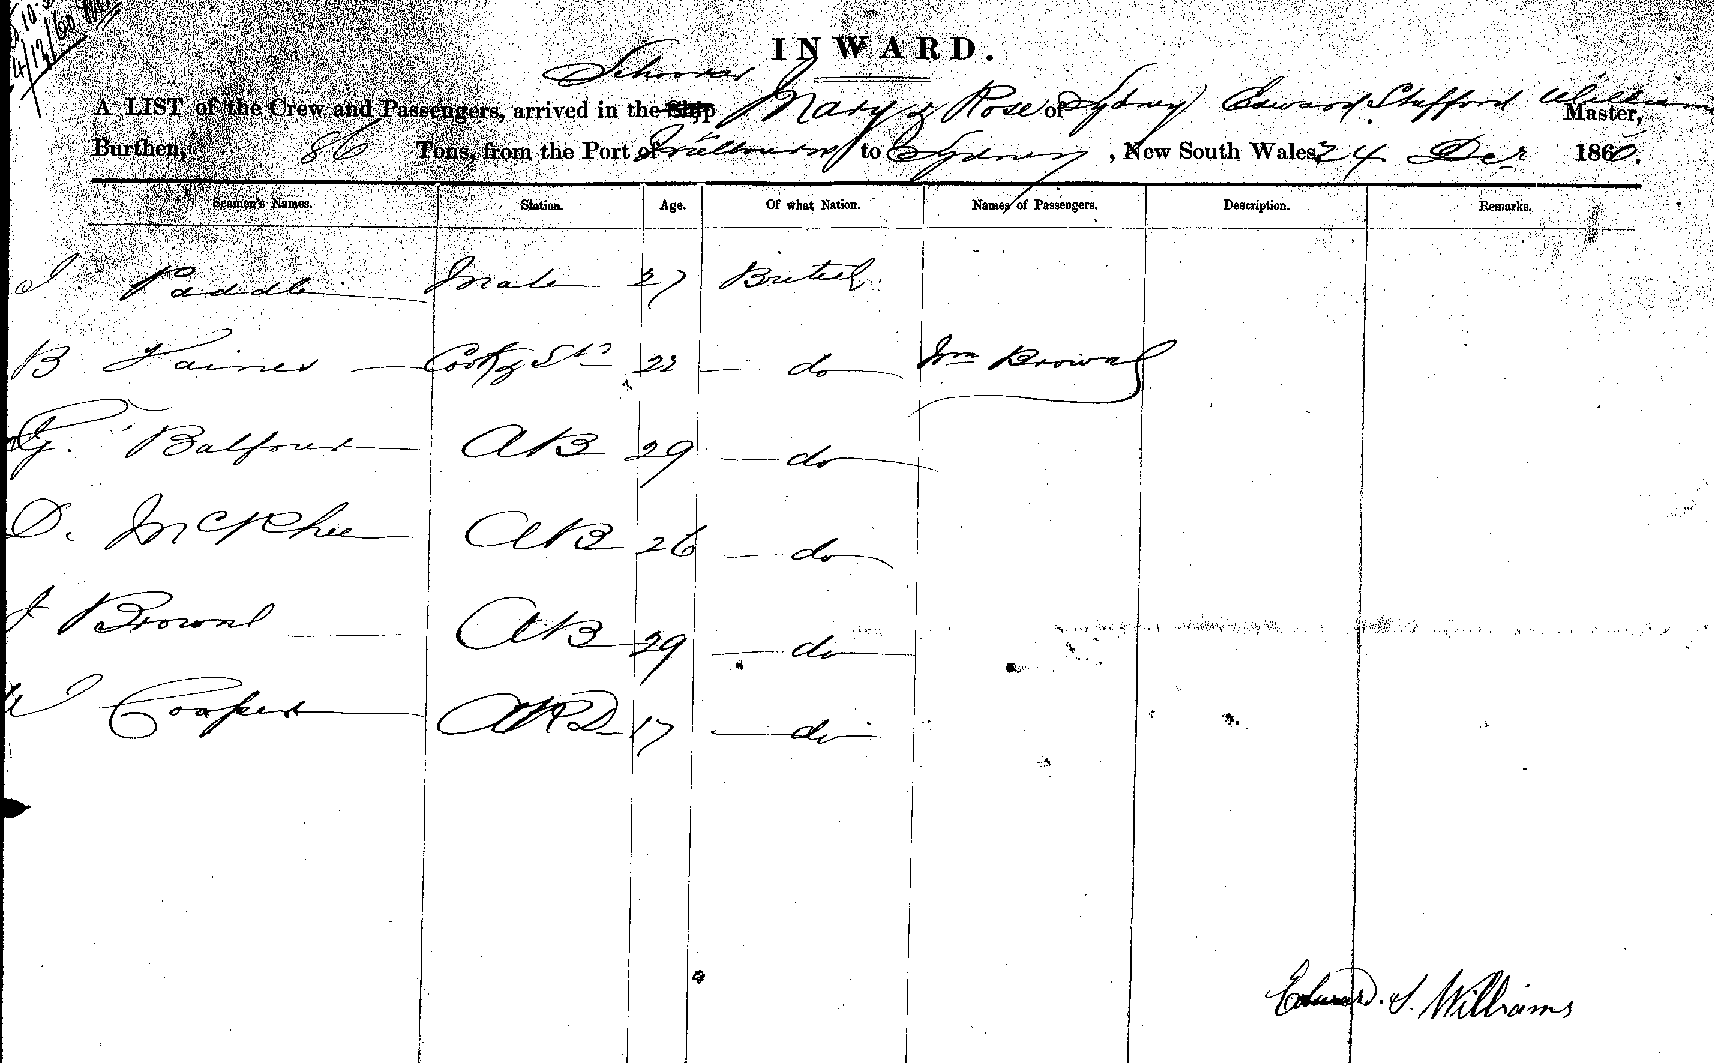 4/12/60
INWARD.
Schooner
A LIST of the Crew and Passengers, arrived in the Ship Mary & Rose of Sydney Edward Stafford Williams Master,
Burthen, 86 Tons, from the Port of Melbourne to Sydney, New South Wales, 24 Decr 1860.
Seamen's Names. Station. Age. Of what Nation. Names of Passengers. Description. Remarks.
Mate 27 British
B Cook & Std 22 do Wm Brown
Balfour AB 29 do
D. McPhee AB 26 do
J Brown AB 29 do
W Cooper 17 do
Edward. S. Williams